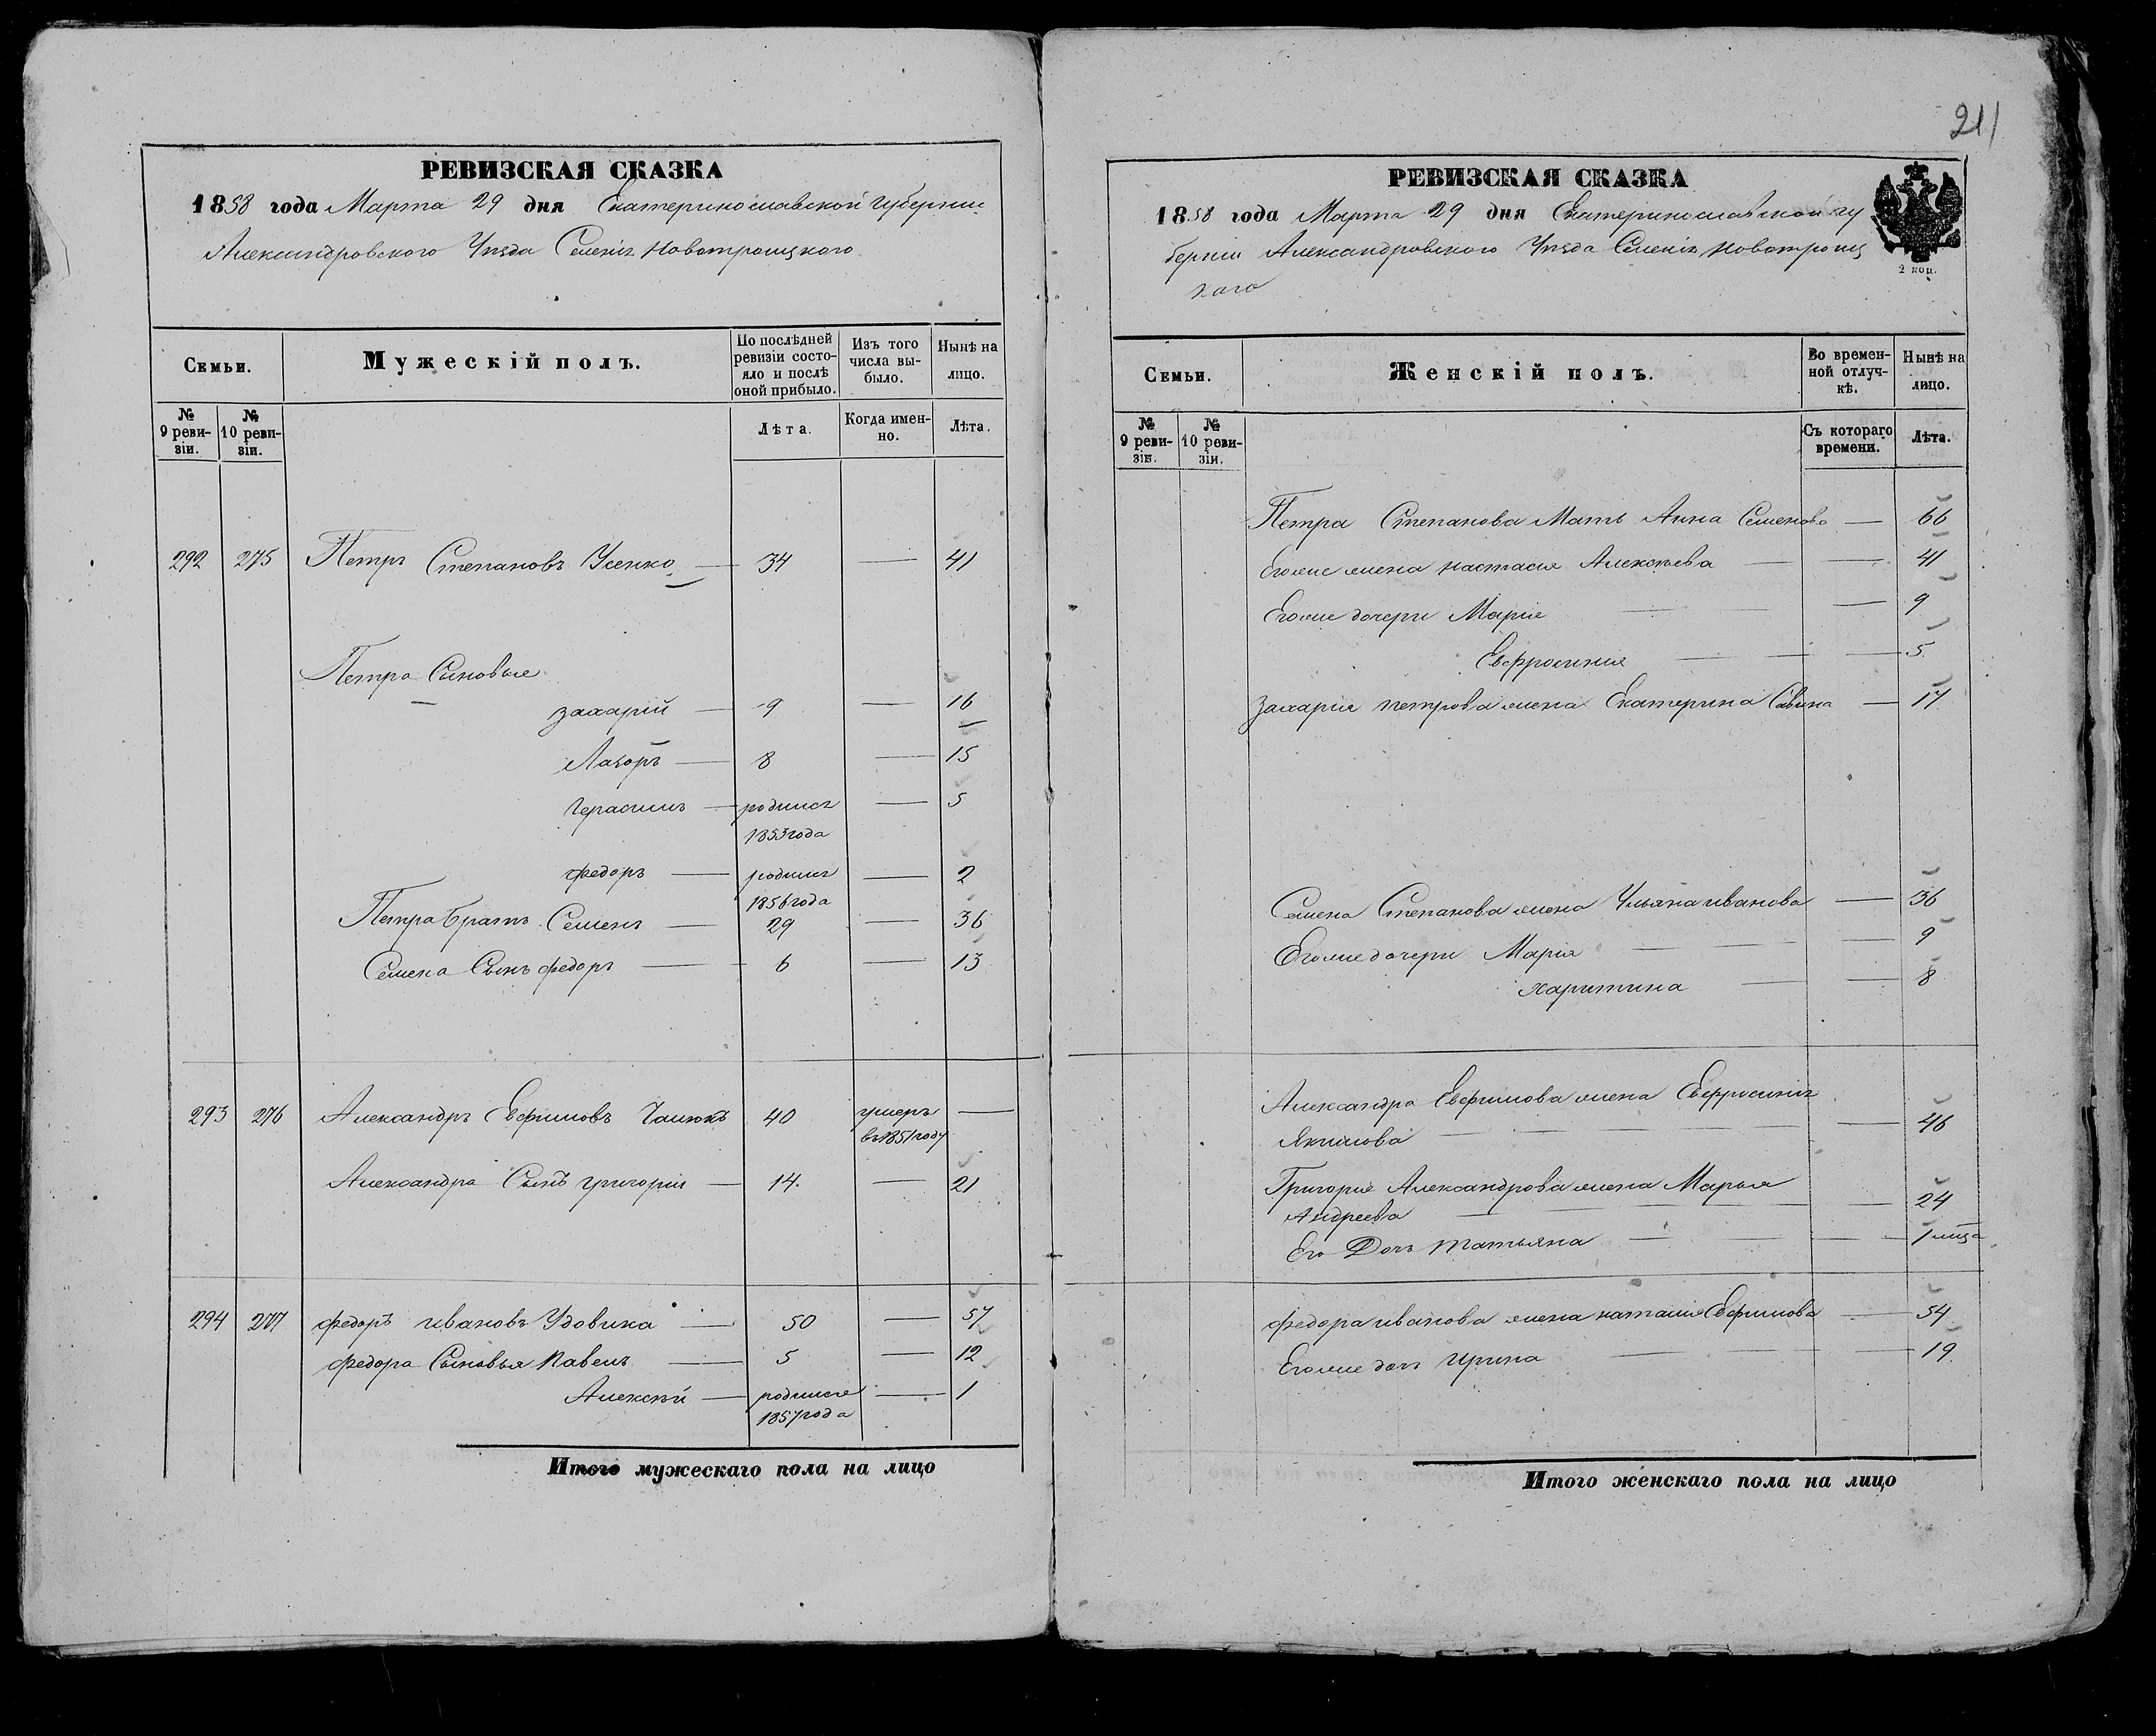 211
РЕВИЗСКАЯ СКАЗКА
1858 года Марта 29 дня Екатеринославской губернии
Александровского Уезда Селенія Новотроицкого
Семьи.
Мужескій полъ.
По послѣдней ревизіи состояло и послѣ оной прибыло.
Изъ того числа выбыло.
Нынѣ на лицо.
№ 9 ревизіи.
№ 10 ревизіи.
Лѣта.
Когда именно.
Лѣта.
292 275 Петръ Степановъ Усенко — 34 — 41
Петра Сыновья
Захарій — 9 — 16
Лазорь — 8 — 15
Герасимъ — родился 1853 года — 5
Федоръ — родился 1856 года — 2
Петра братъ Семенъ — 29 — 36
Семена Сынъ Федоръ — 6 — 13
293 276 Александръ Евфимовъ 40 умеръ въ 1851 году —
Александра Сынъ Григорій — 14. — 21
294 277 Федоръ Ивановъ Удовика — 50 — 57
Федора Сыновья Павелъ — 5 — 12
Алексѣй — родился 1857 года — 1
Итого мужескаго пола на лицо
РЕВИЗСКАЯ СКАЗКА
1858 года Марта 29 дня Екатеринославской гу
берніи Александровского Уезда Селенія Новотроиц
кого
2 коп.
Семьи.
Женскій полъ.
Во временной отлучкѣ.
Нынѣ на лицо.
№ 9 ревизіи.
№ 10 ревизіи.
Съ котораго времени.
Лѣта.
Петра Степанова Мать Анна Семенова — 66
Егоже жена Настасія Алексѣева — 41
Егоже дочери Марія — 9
Евфросинія — 5
Захарія Петрова жена Екатерина Савина — 17
Семена Степанова жена Ульяна Иванова — 36
Егоже дочери Марія — 9
Харитина — 8
Александра Евфимова жена Евфросинія
Якимова — 46
Григорія Александрова жена Марья
Андреева — 24
Его Дочь Татьяна — 1 мца
Федора Иванова жена Наталія Евфимова — 54
Егоже дочь Ирина — 19
Итого женскаго пола на лицо